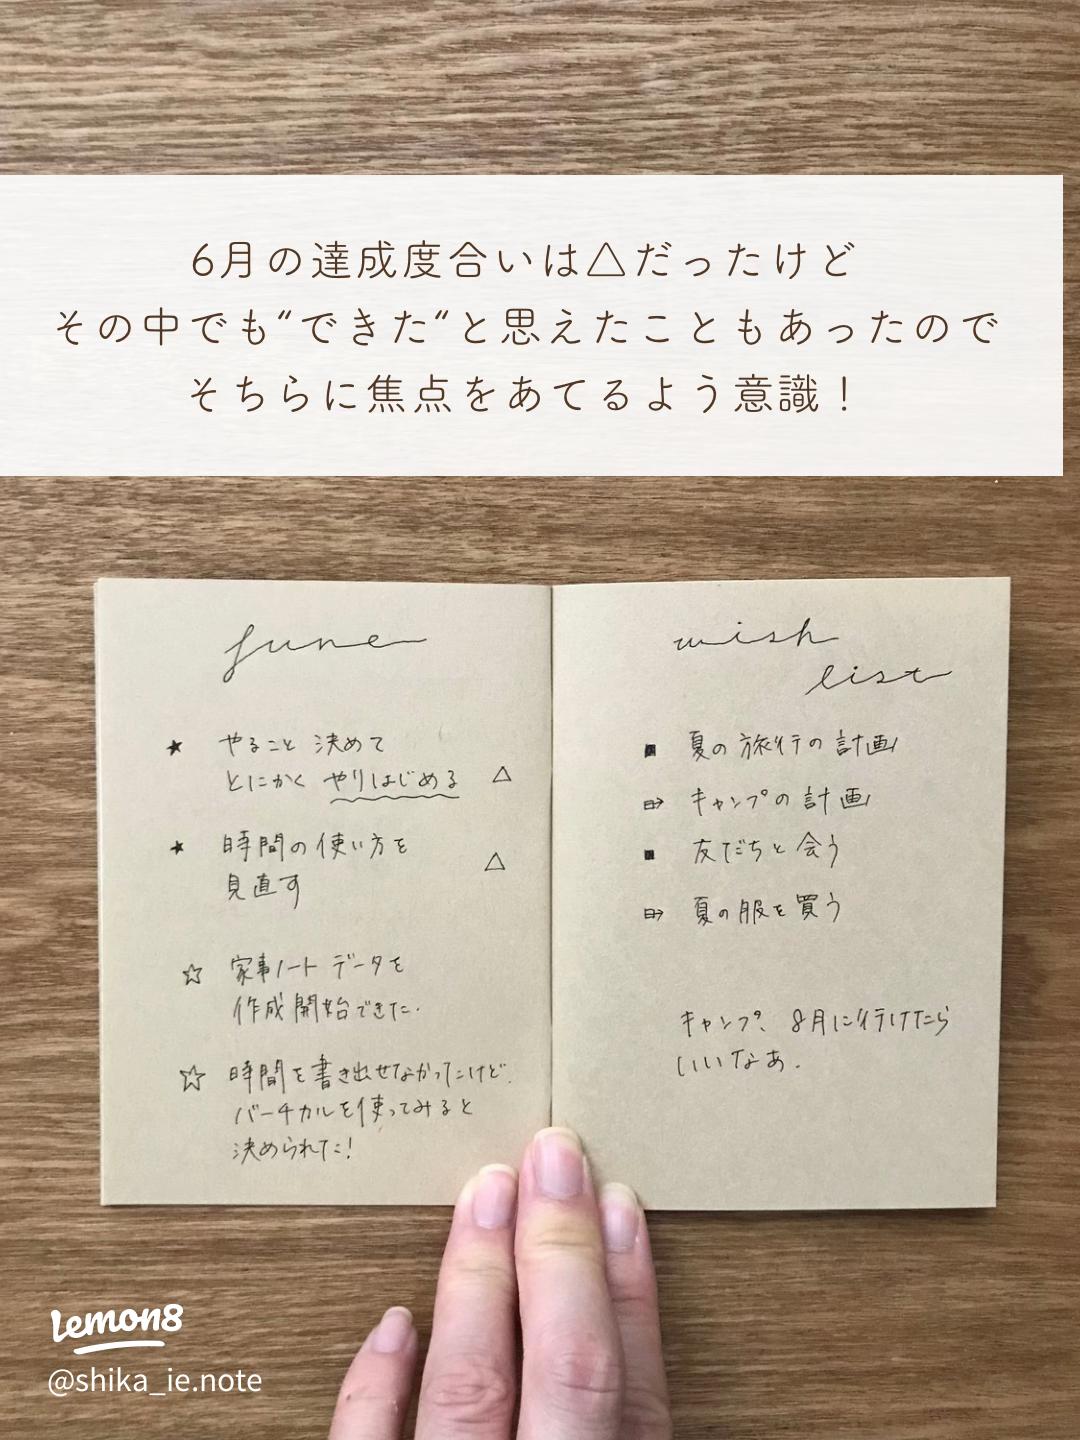 6月の達成度合いは△だったけど
その中でも“できた“と思えたこともあったので
そちらに焦点をあてるよう意識！
june
★ やること 決めて
とにかく やりはじめる △
★ 時間の使い方を
見直す △
☆ 家事ノート データを
作成開始できた.
☆ 時間を書き出せなかったけど.
バーチカルを使ってみると
決められた!
wish
list
■ 夏の旅行の計画
キャンプの計画
■ 友だちと会う
夏の服を買う
キャンプ、8月に行けたら
いいなあ.
Lemon8
@shika_ie.note